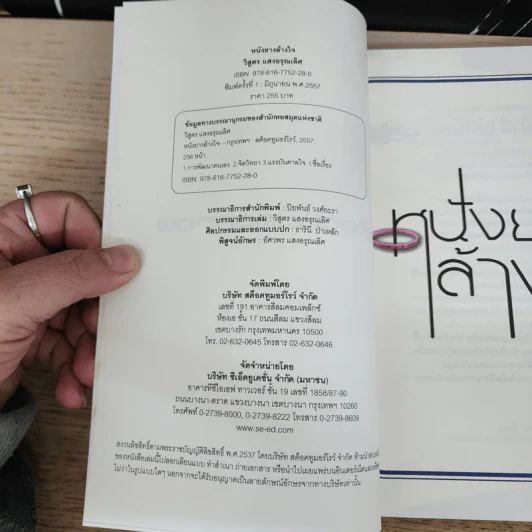 หนังยางล้างใจ
วิสูตร แสงอรุณเลิศ
ISBN 978-616-7752-28-0
พิมพ์ครั้งที่ 1 : มิถุนายน พ.ศ.2557
ราคา 255 บาท
ข้อมูลทางบรรณานุกรมของสำนักหอสมุดแห่งชาติ
วิสูตร แสงอรุณเลิศ
หนังยางล้างใจ.- กรุงเทพฯ : สต็อคทูมอร์โรว์, 2557.
256 หน้า
1.การพัฒนาตนเอง 2.จิตวิทยา 3.แรงบันดาลใจ. I.ชื่อเรื่อง.
ISBN 978-616-7752-28-0
บรรณาธิการสำนักพิมพ์ : ปิยพันธ์ วงศ์ยะรา
บรรณาธิการเล่ม : วิสูตร แสงอรุณเลิศ
ศิลปกรรมและออกแบบปก : ธารินี ป่าเหล็ก
พิสูจน์อักษร : อัศวพร แสงอรุณเลิศ
จัดพิมพ์โดย
บริษัท สต็อคทูมอร์โรว์ จำกัด
เลขที่ 191 อาคารสีลมคอมเพล็กซ์
ห้องเอ ชั้น 17 ถนนสีลม แขวงสีลม
เขตบางรัก กรุงเทพมหานคร 10500
โทร. 02-632-0645 โทรสาร 02-632-0646
จัดจำหน่ายโดย
บริษัท ซีเอ็ดยูเคชั่น จำกัด (มหาชน)
อาคารทีซีไอเอฟ ทาวเวอร์ ชั้น 19 เลขที่ 1858/87-90
ถนนบางนา-ตราด แขวงบางนา เขตบางนา กรุงเทพฯ 10260
โทรศัพท์ 0-2739-8000, 0-2739-8222 โทรสาร 0-2739-8609
www.se-ed.com
สงวนลิขสิทธิ์ตามพระราชบัญญัติลิขสิทธิ์ พ.ศ.2537 โดยบริษัท สต็อคทูมอร์โรว์ จำกัด
ของหนังสือเล่มนี้ไปลอกเลียนแบบ ทำสำเนา ถ่ายเอกสาร หรือนำไปเผยแพร่บนอินเตอร์เน็ต
ไม่ว่าในรูปแบบใดๆ นอกจากจะได้รับอนุญาตเป็นลายลักษณ์อักษรจากทางบริษัทเท่านั้น
หนังย
ล้าง